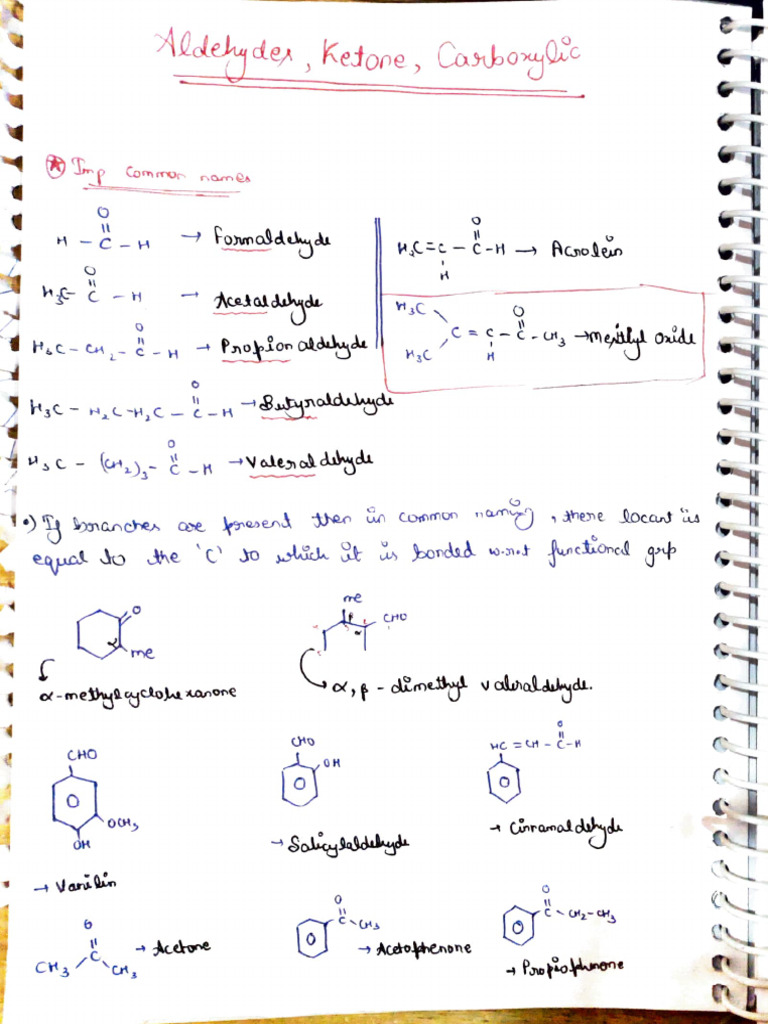 Aldehydes, Ketone, Carboxylic
Imp common names
H - C - H → Formaldehyde
O
H3C - C - H → Acetaldehyde
O
H3C - CH2 - C - H → Propionaldehyde
O
H3C - H2C - H2C - C - H → Butyraldehyde
O
H3C - (CH2)3 - C - H → Valeraldehyde
O
H2C = C - C - H → Acrolein
O
H
H3C
C = C - C - CH3 → Mesityl oxide
O
H3C
H
•) If branches are present then in common naming, there locant is
equal to the 'C' to which it is bonded w.r.t functional grp
O
α
me
α-methylcyclohexanone
me
β
α
CHO
α, β - dimethyl valeraldehyde.
CHO
OCH3
OH
→ Vanilin
CHO
OH
→ Salicylaldehyde
O
HC = CH - C - H
→ Cinnamaldehyde
O
C
CH3 CH3
→ Acetone
O
C - CH3
→ Acetophenone
O
C - CH2 - CH3
→ Propiophenone